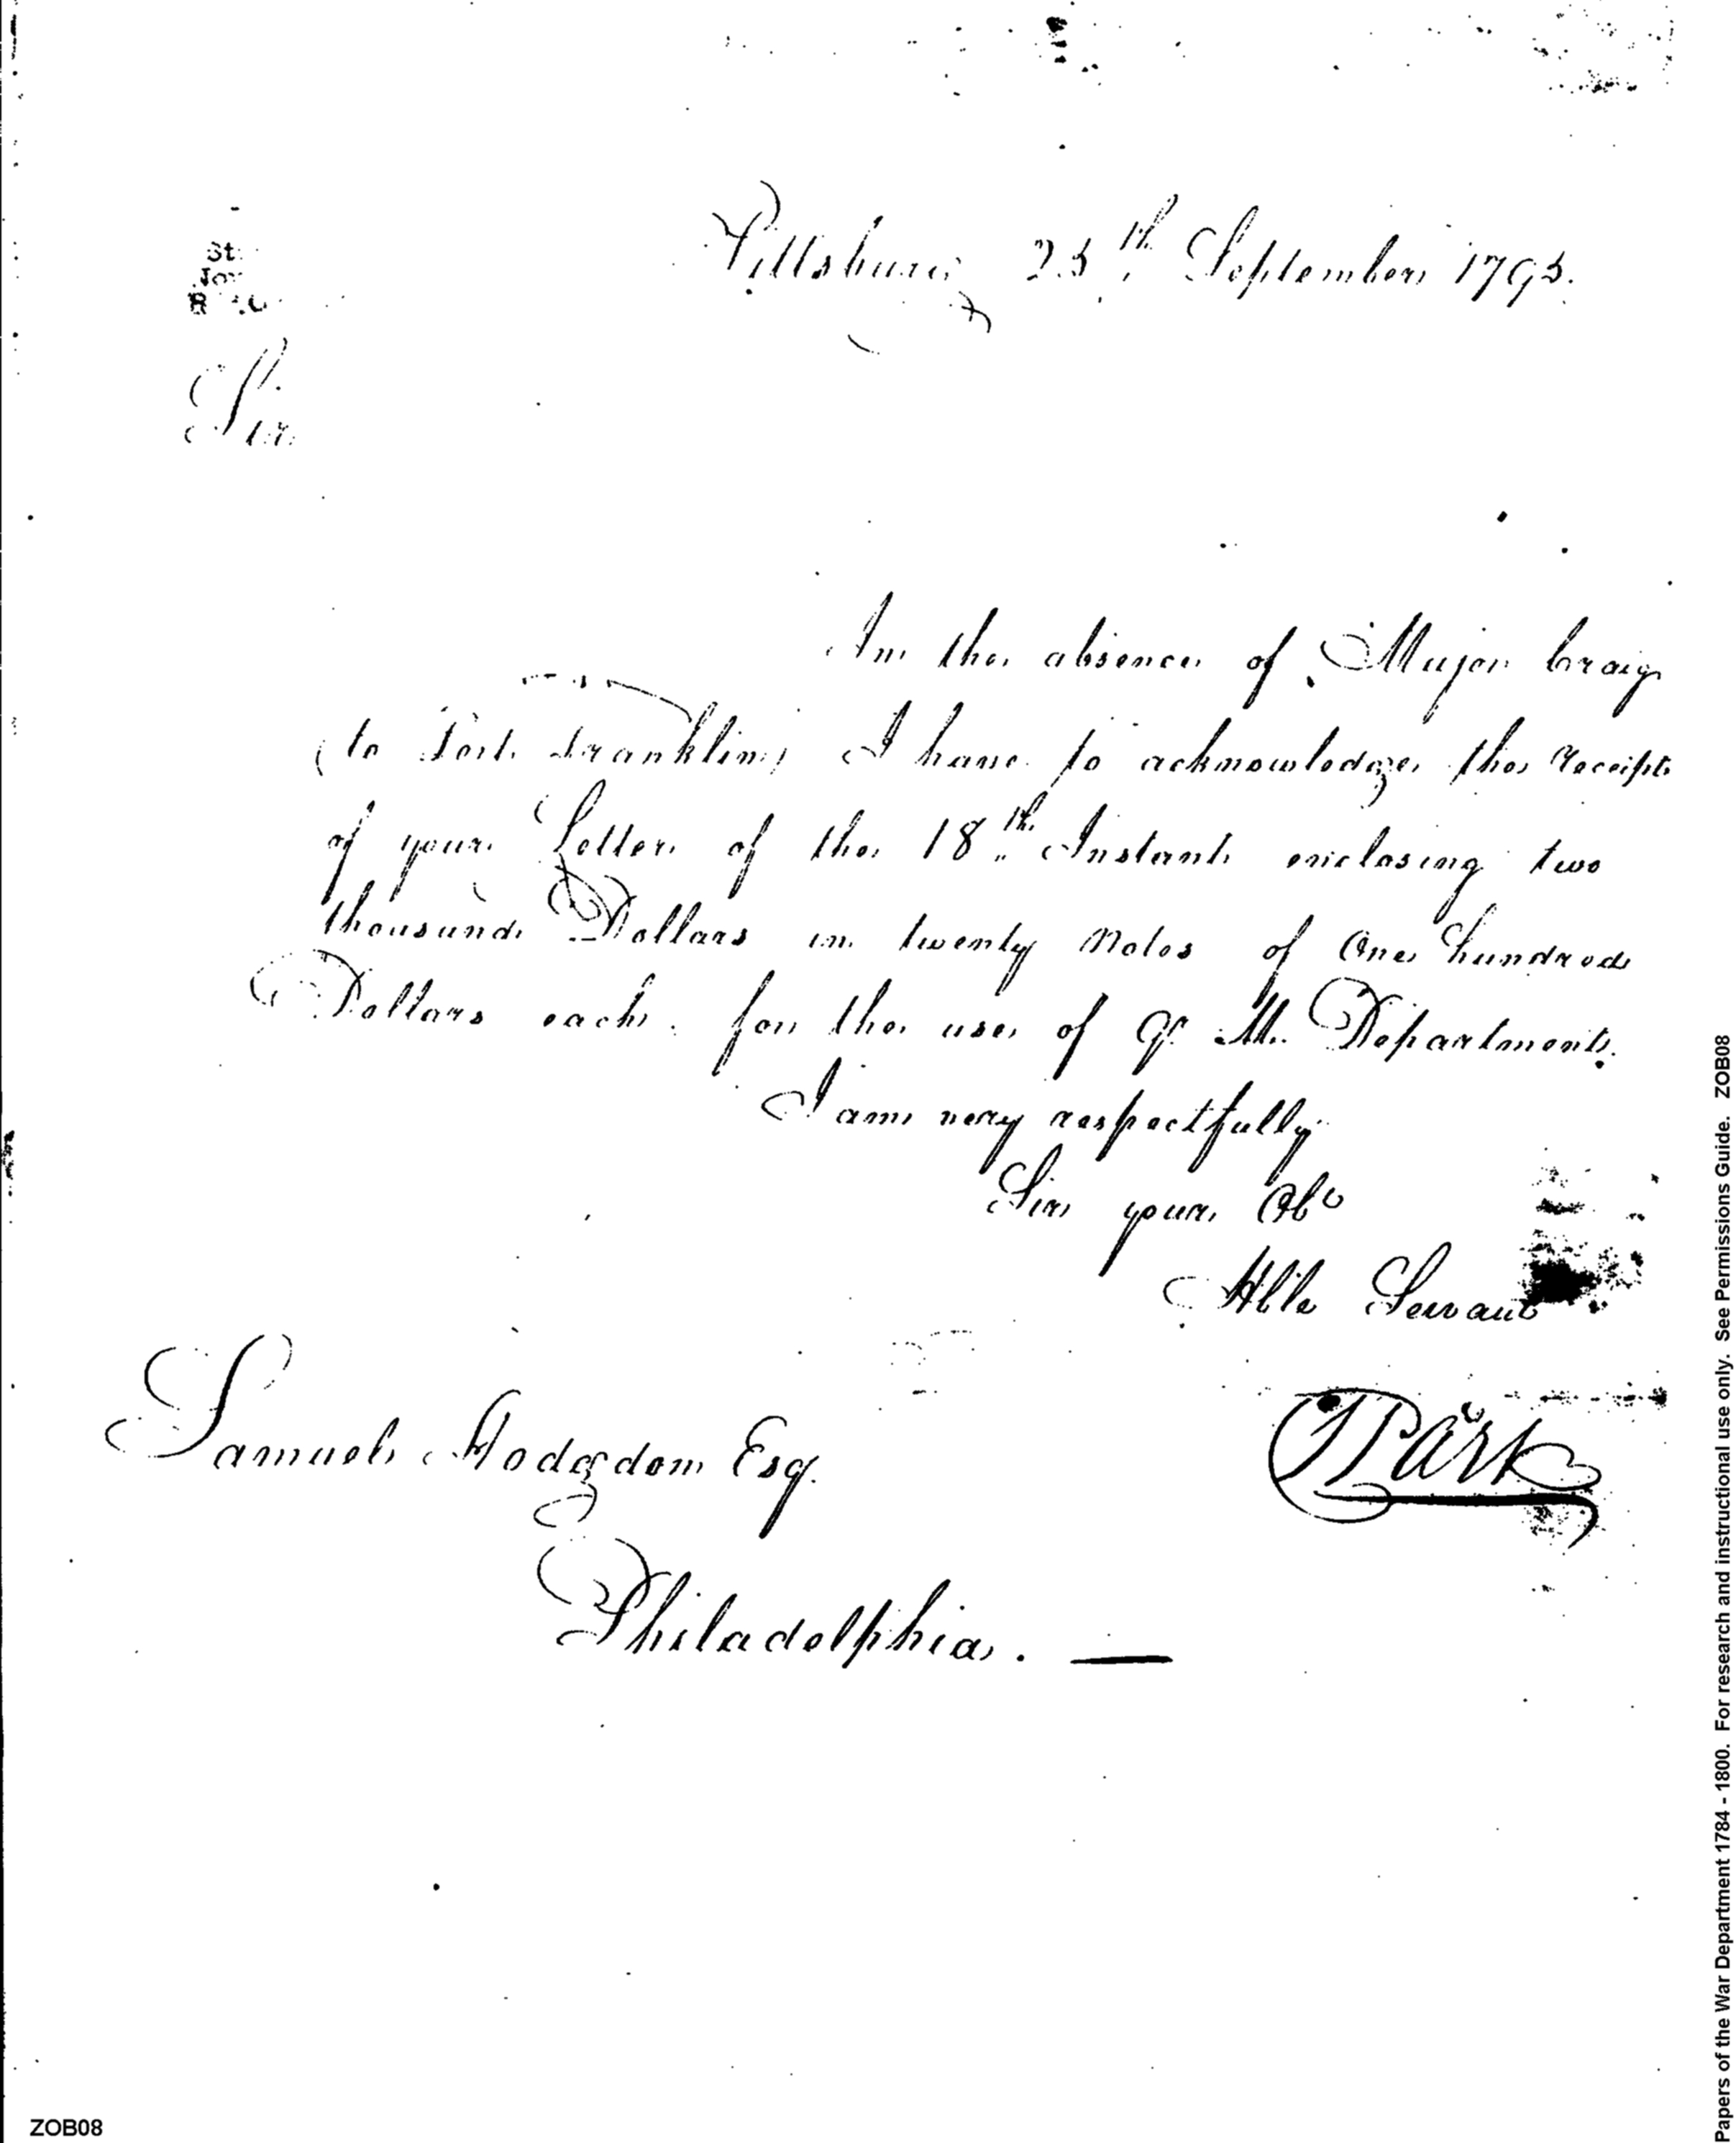 Pittsburg 25th September 1795.
Sir
In the absence of Major Craig
(to Fort Franklin) I have to acknowledge the receipt
of your Letter of the 18th Instant enclosing two
thousand Dollars in twenty notes of One hundred
Dollars each. for the use of Qr. M. Department.
I am very respectfully
Sir your Obt
Hble Servant
Samuel Hodgdon Esq.
JPark
Philadelphia. —
ZOB08
Papers of the War Department 1784 - 1800. For research and instructional use only. See Permissions Guide. ZOB08